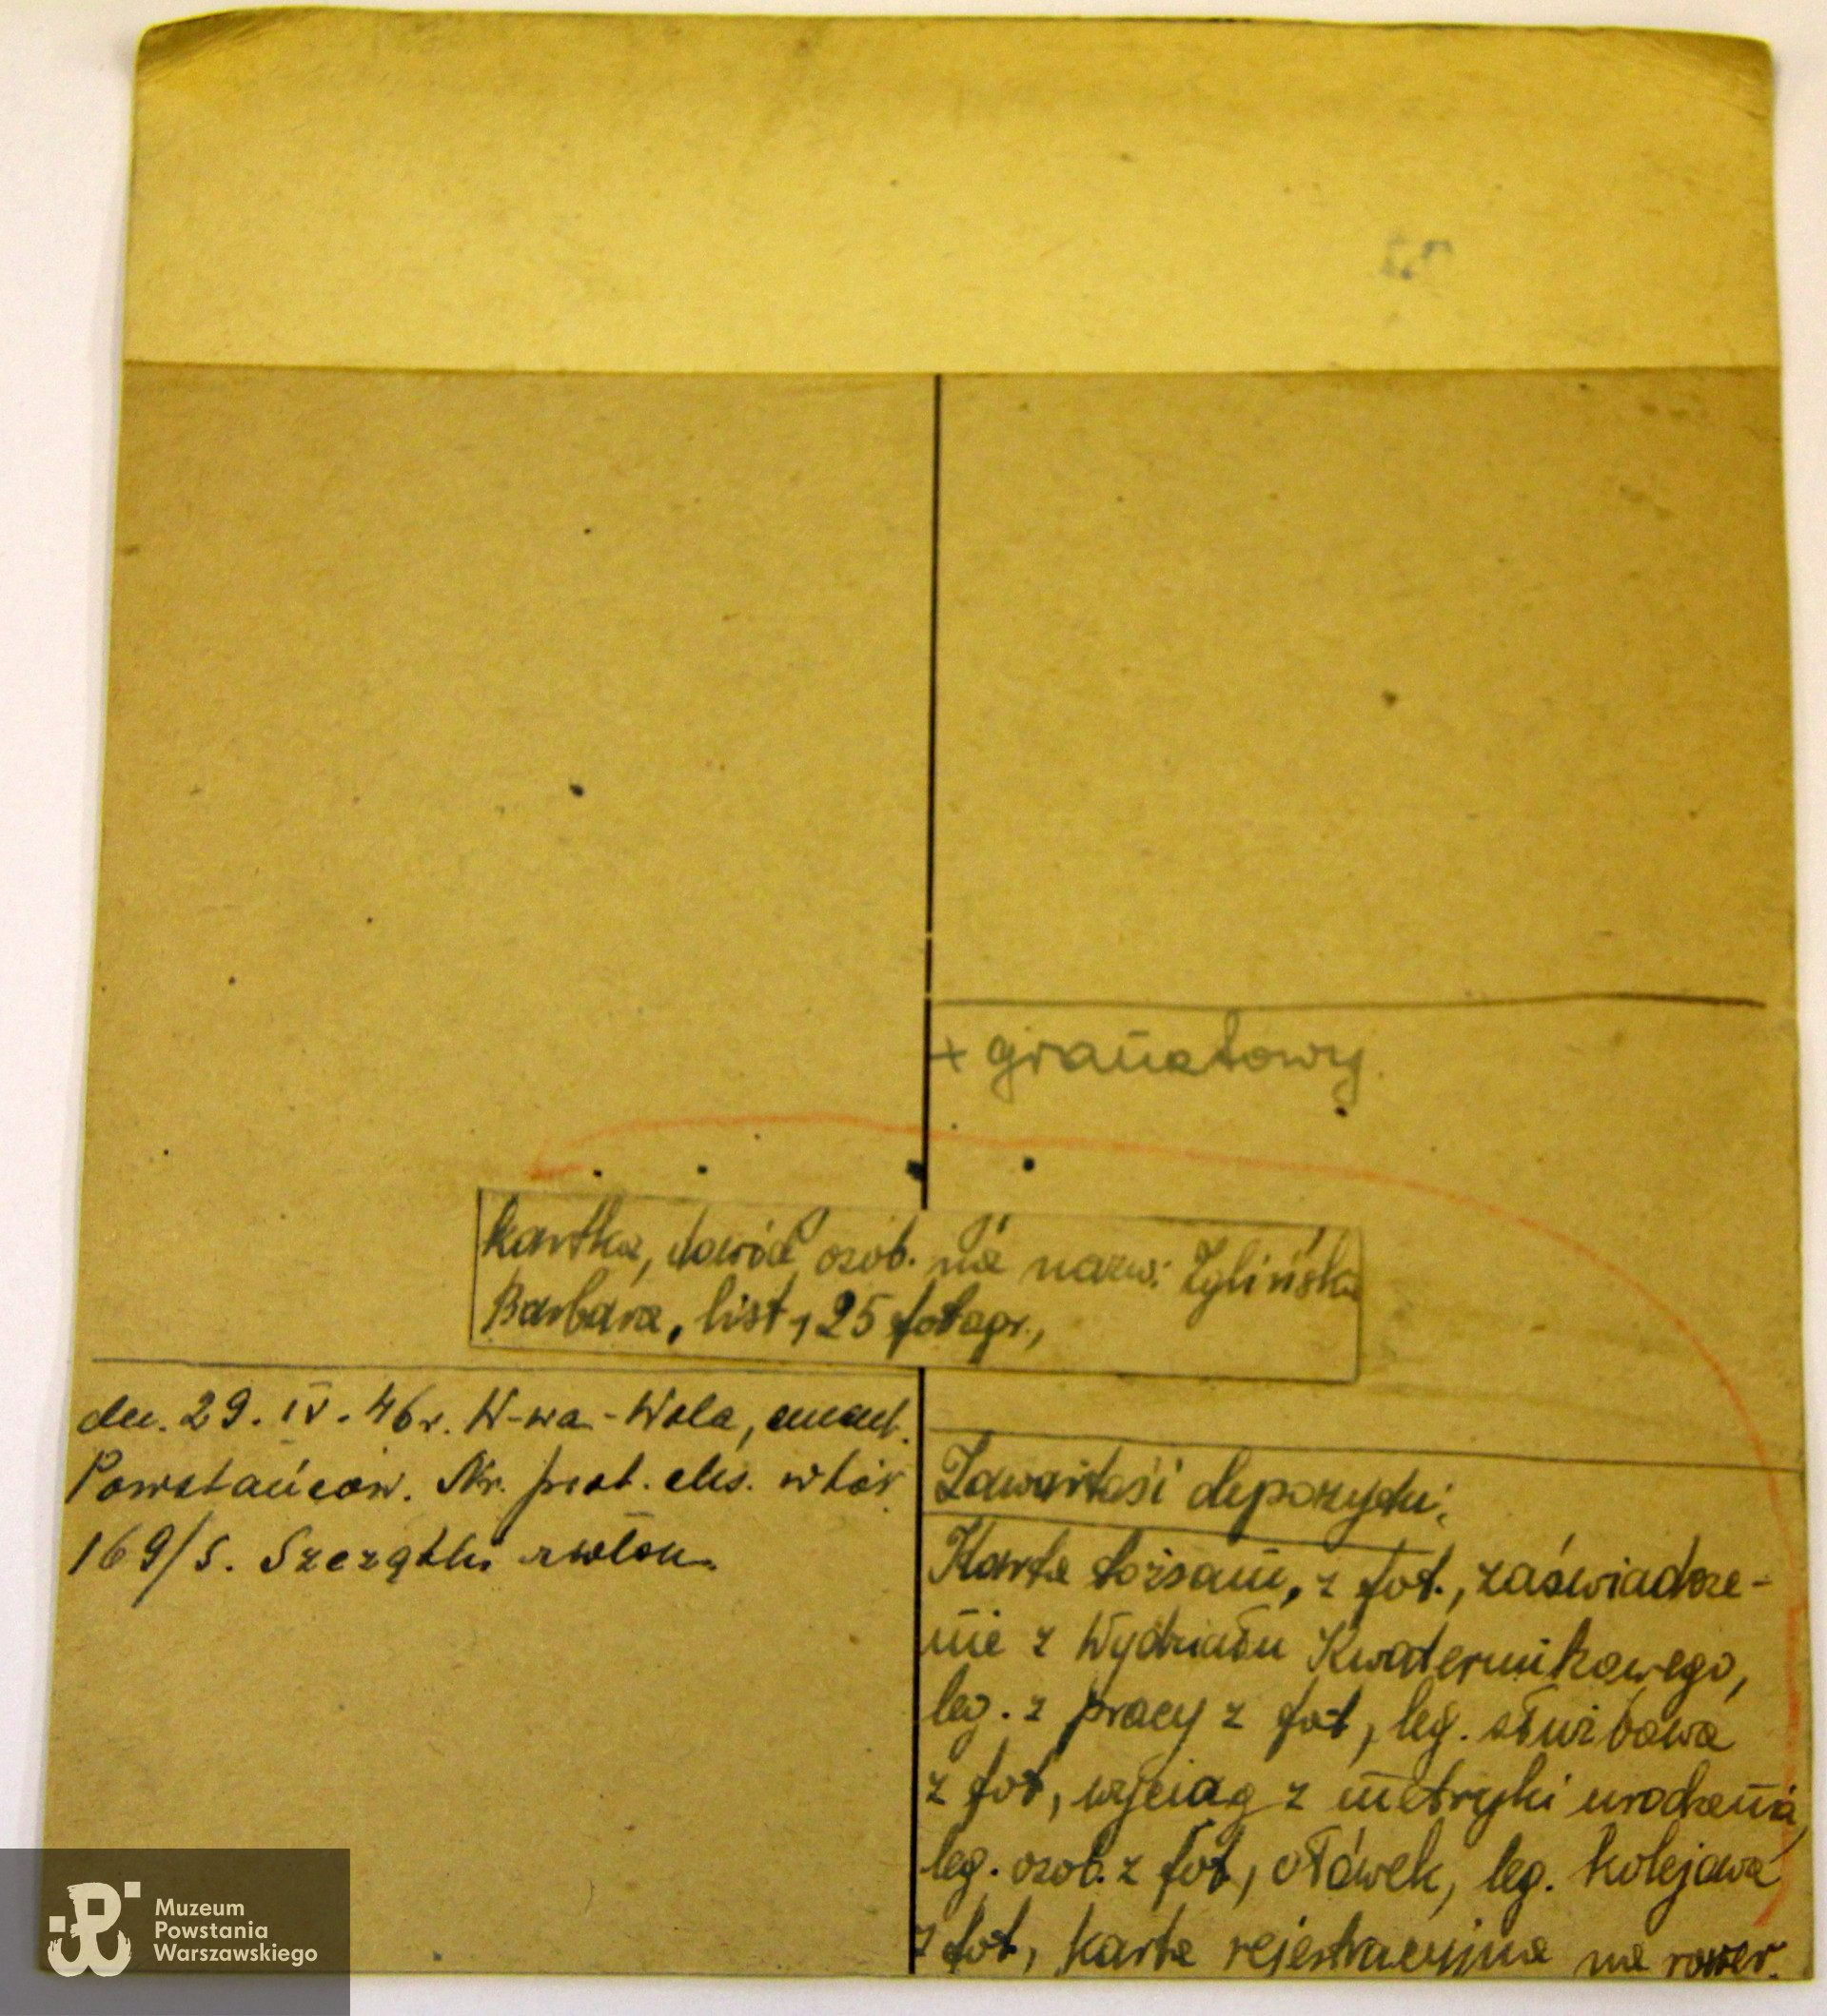 + granatowy.
kartka, dowód osob. na nazw: Żylińska
Barbara, list, 25 fotogr.,
dn. 29. IV. 46 r. W-wa - Wola, cment.
Powstańców. Nr. prot. eks. wtór
169/s. Szczątki zwłok.
Zawartość depozytu:
Karta tożsam, z fot., zaświadcze-
nie z Wydziału Kwaterunkowego,
leg. z pracy z fot, leg. służbowa
z fot, wyciąg z metryki urodzenia,
leg. osob. z fot, ołówek, leg. kolejowa
z fot, karta rejestracyjna na rower.
Muzeum
Powstania
Warszawskiego